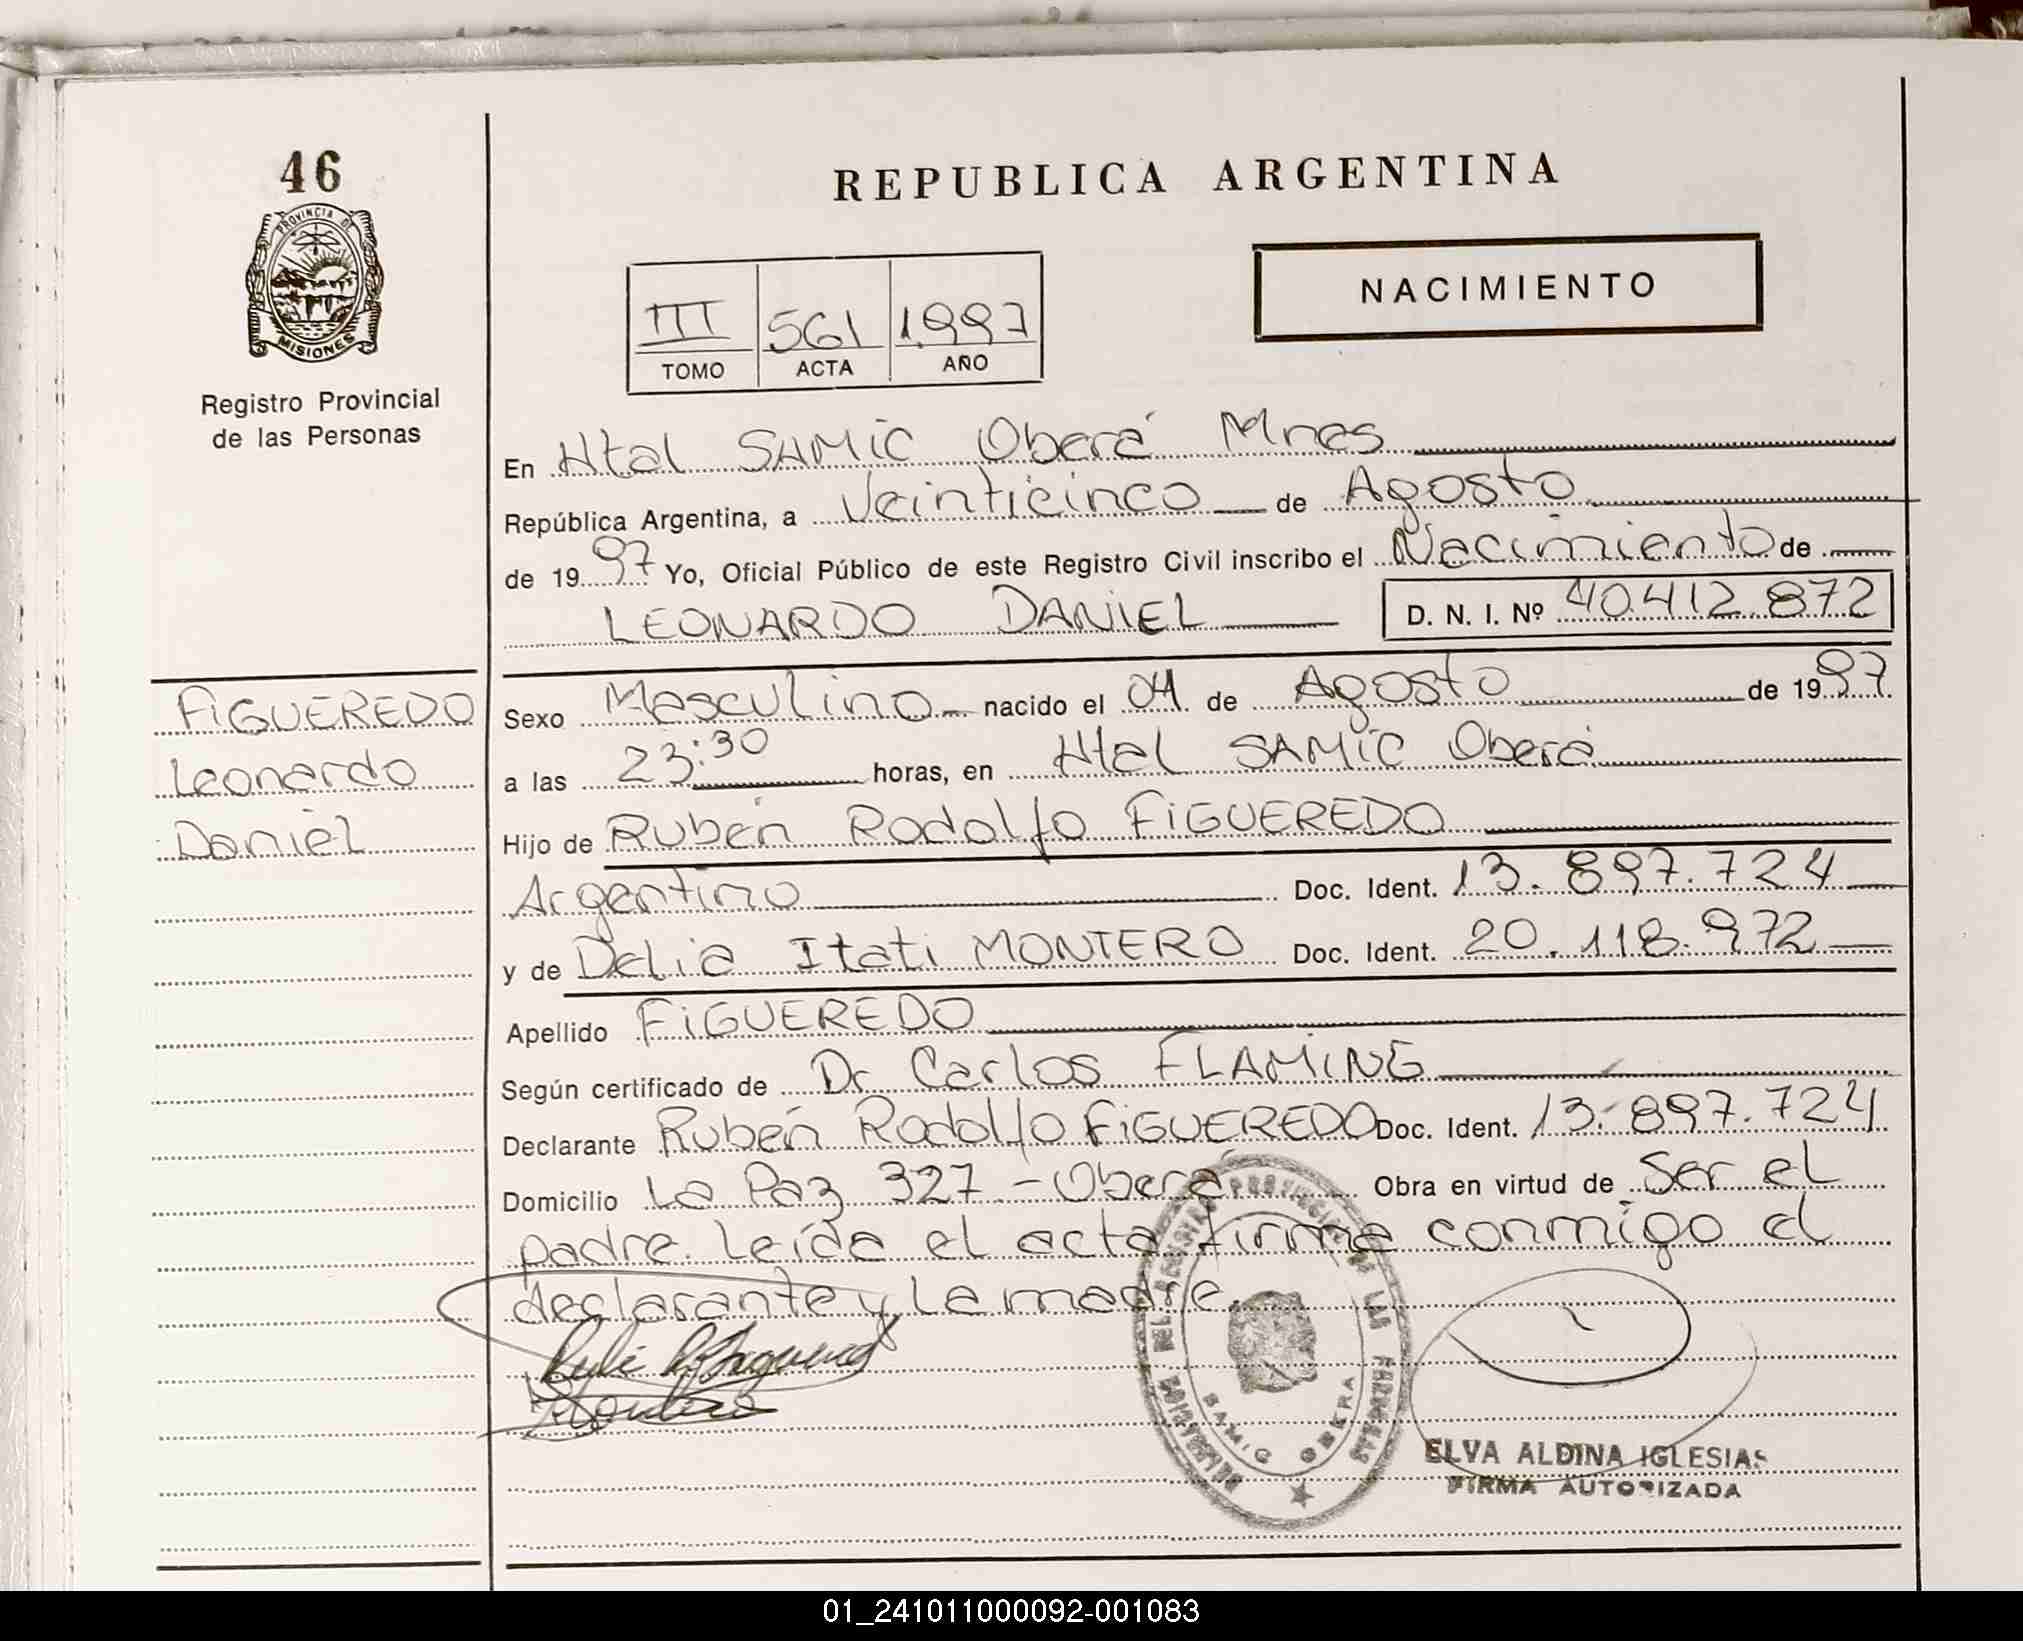 46
PROVINCIA DE
MISIONES
Registro Provincial
de las Personas
REPUBLICA ARGENTINA
NACIMIENTO
III 561 1.997
TOMO ACTA AÑO
En Htal SAMiC Oberá Mnes
República Argentina, a Veinticinco de Agosto
de 1997 Yo, Oficial Público de este Registro Civil inscribo el Nacimiento de
LEONARDO DANIEL D. N. I. Nº 40.412.872
FiGUEREDO
Leonardo
Daniel
Sexo Masculino nacido el 04 de Agosto de 1997.
a las 23:30 horas, en Htal SAMiC Oberá
Hijo de Rubén Rodolfo FiGUEREDO
Argentino Doc. Ident. 13.897.724
y de Delia Itati MONTERO Doc. Ident. 20.118.972
Apellido FiGUEREDO
Según certificado de Dr Carlos FLAMiNG
Declarante Rubén Rodolfo FiGUEREDO Doc. Ident. 13.897.724
Domicilio La Paz 327 - Oberá Obra en virtud de Ser el
padre. Leída el acta firma conmigo el
declarante y La madre.
DELEGACION DEL REGISTRO PROVINCIAL DE LAS PERSONAS
SAMIC OBERA
ELVA ALDINA IGLESIAS
FIRMA AUTORIZADA
01_241011000092-001083